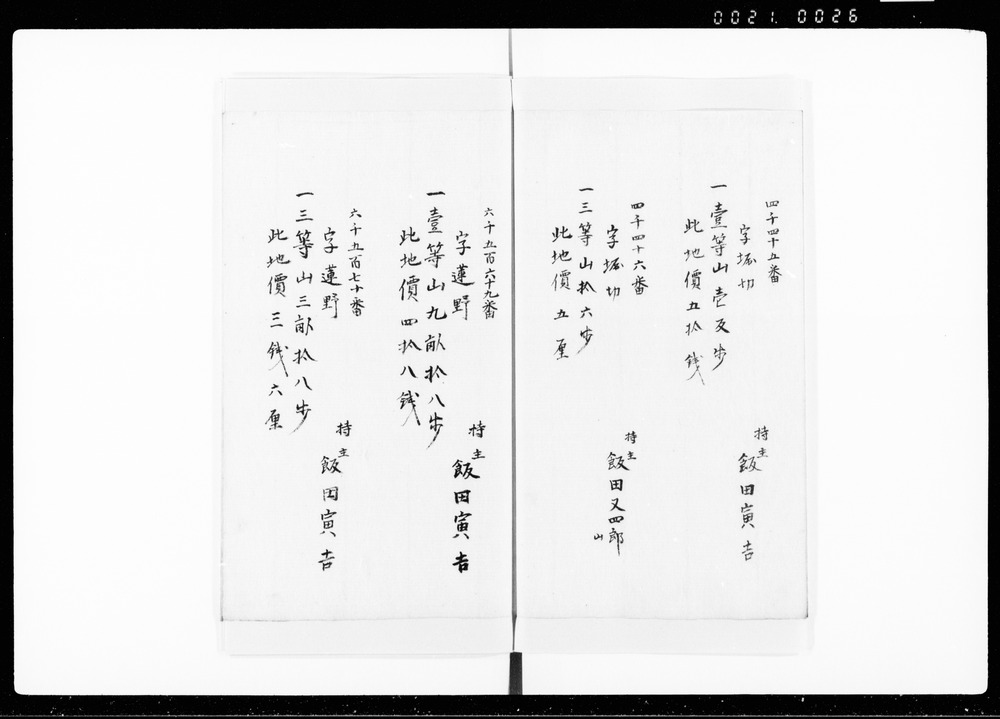 0021 0026
四千四十五番
字堀切
一壹等山壱反歩
此地價五拾錢
持主
飯田寅吉
四千四十六番
字堀切
一三等山拾六歩
此地價五厘
持主
飯田又四郎
山
六千五百六十九番
字蓮野
一壹等山九畝拾八歩
此地價四拾八錢
持主
飯田寅吉
六千五百七十番
字蓮野
一三等山三畝拾八歩
此地價三錢六厘
持主
飯田寅吉